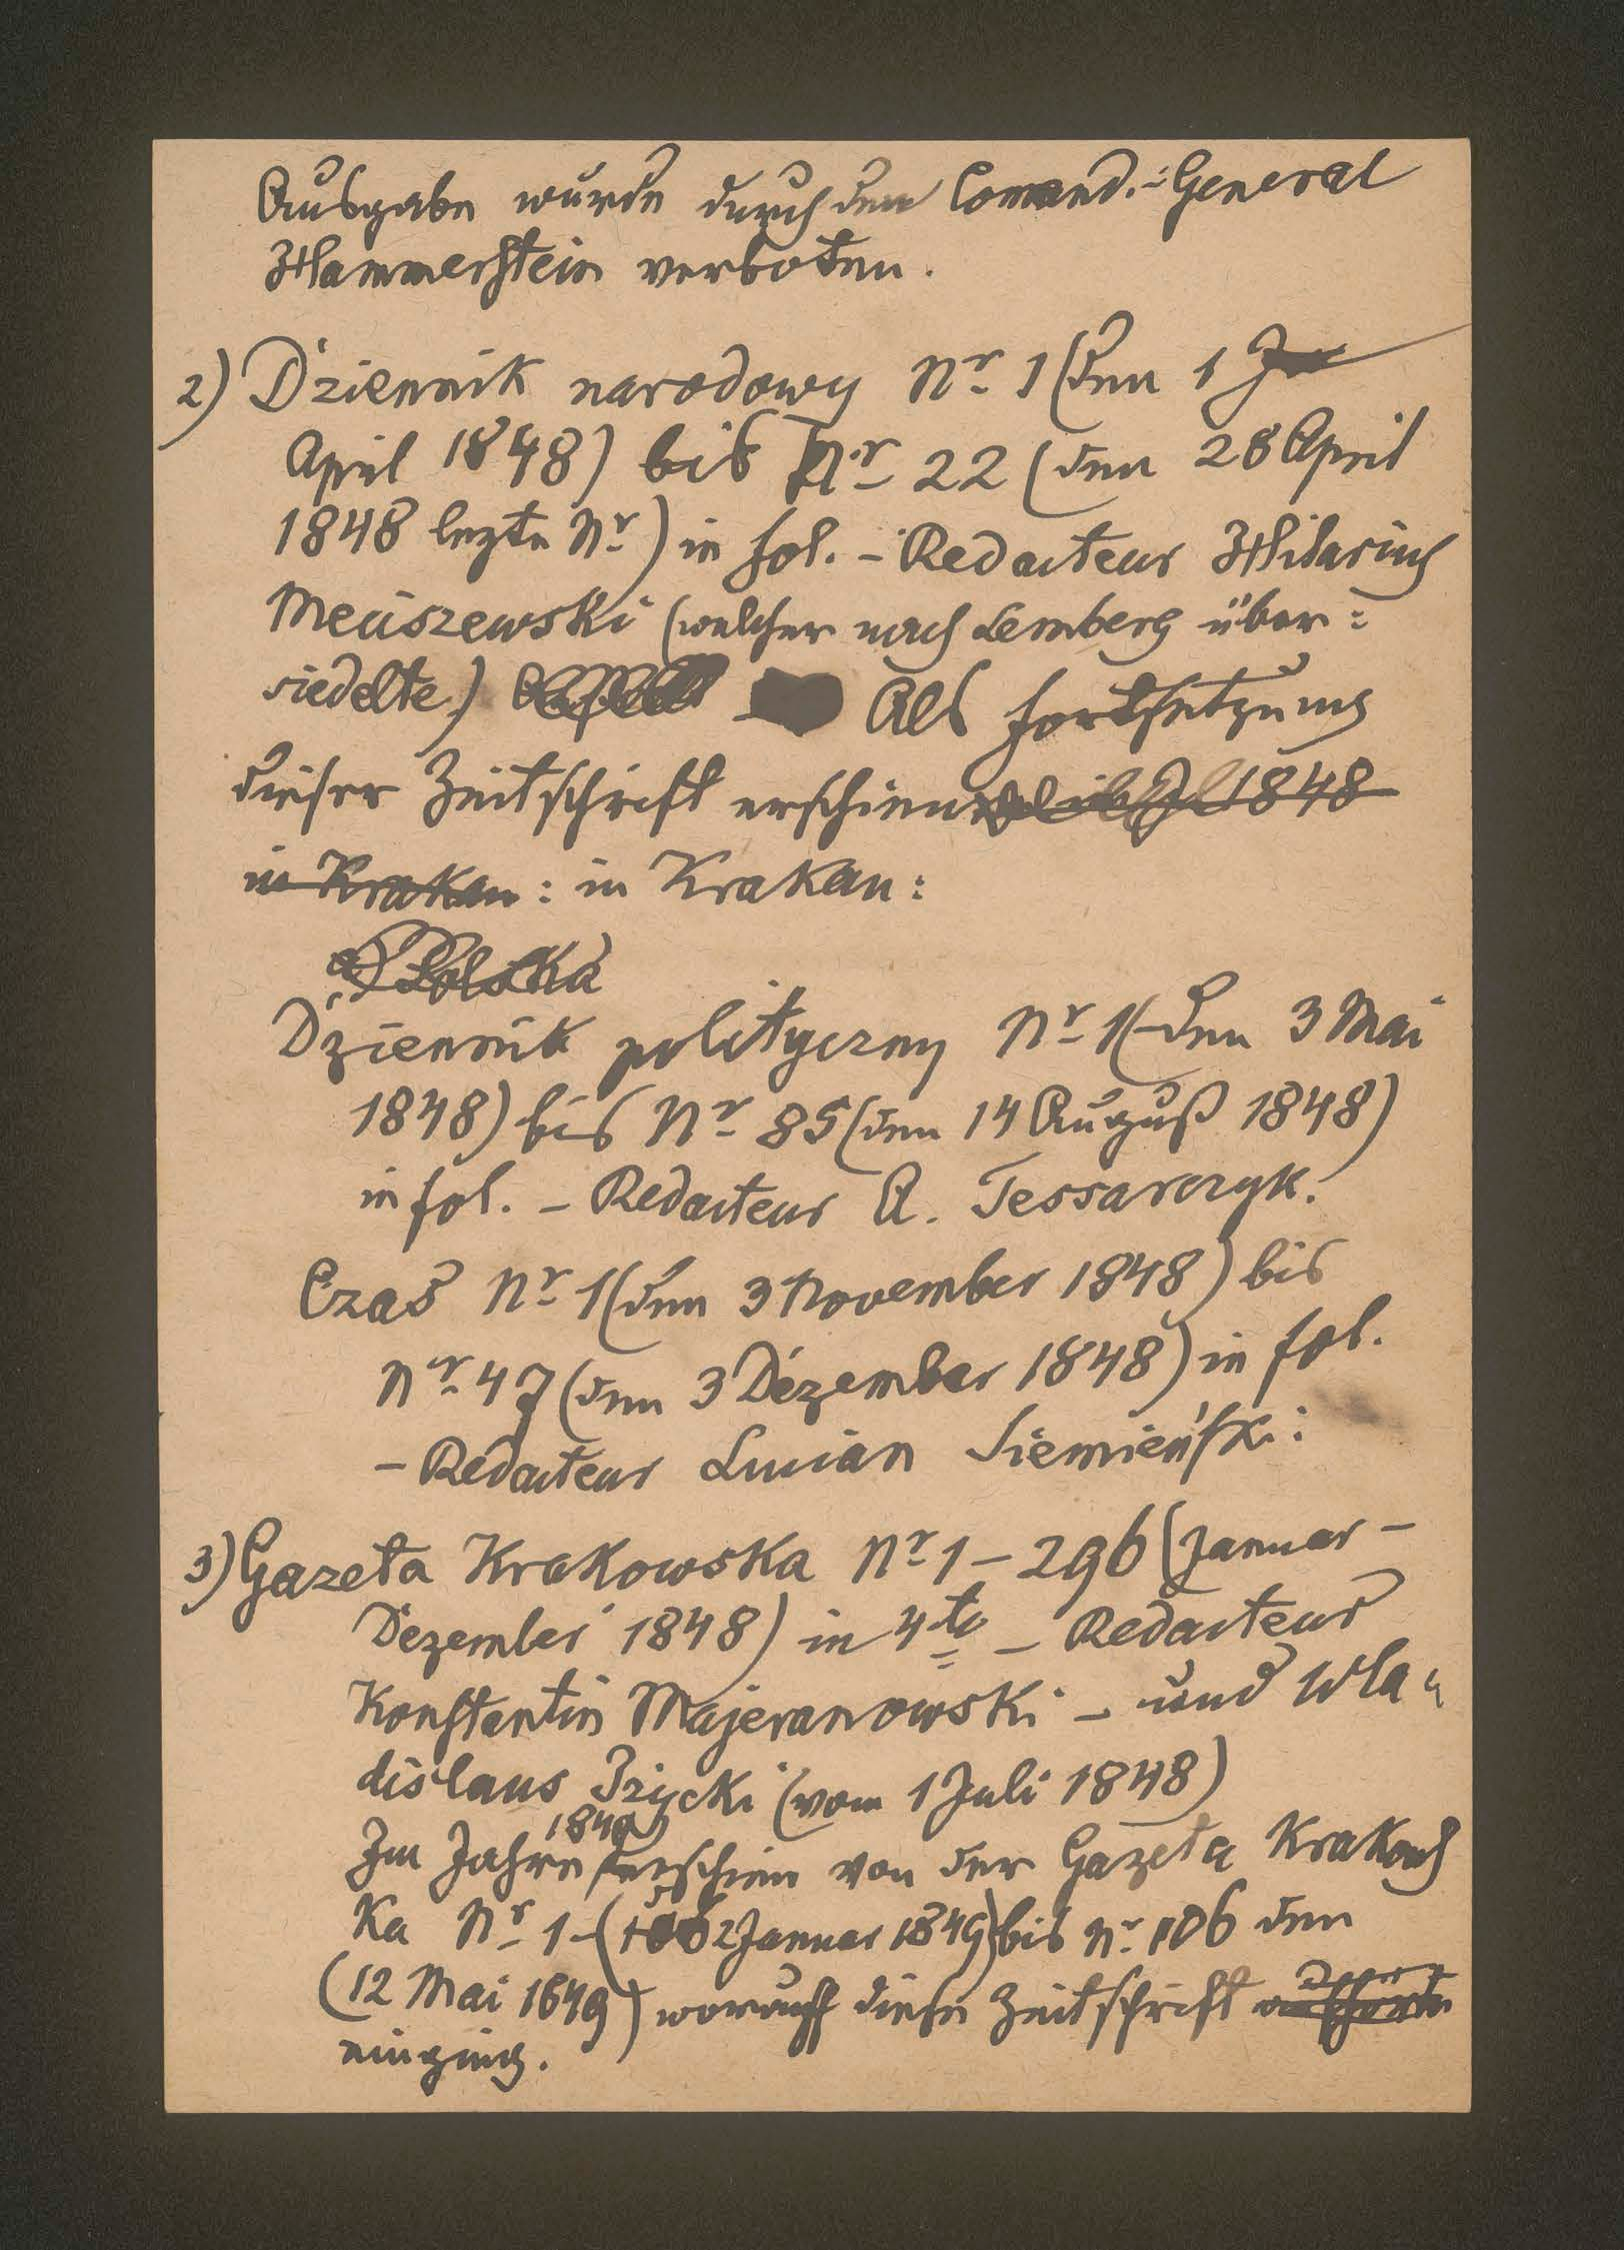 Ausgabe wurde durch den Comand.-General
Hammerstein verboten.
2) Dziennik narodowy Nr 1 (den 1
April 1848) bis Nr 22 (den 28 April
1848 lezte Nr) in fol. – Redacteur Hilarius
Meciszewski (welcher nach Lemberg über:
siedelte) Als Fortsetzung
dieser Zeitschrift erschien 1848
in Krakau: in Krakau:
Polska
Dziennik polityczny Nr 1 (den 3 Mai
1848) bis Nr 85 (den 14 August 1848)
in fol. – Redacteur A. Tessarczyk.
Czas Nr 1 (den 3 November 1848) bis
Nr 47 (den 3 Dezember 1848) in fol.
– Redacteur Lucian Siemieński:
3) Gazeta Krakowska Nr 1 – 296 (Januar –
Dezember 1848) in 4to – Redacteur
Konstantin Majeranowski – und Wla„
dislaus (vom 1 Juli 1848)
Im Jahre 1849 erschien von der Gazeta Krakows
ka Nr 1 – (2 Januar 1849) bis Nr 106 den
(12 Mai 1849) worauf diese Zeitschrift
einging.